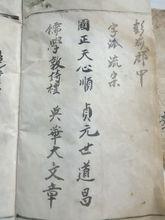 彭城郡甲
字派流宗
國正天心順　貞元世道昌
儒學敦詩禮　英華大文章